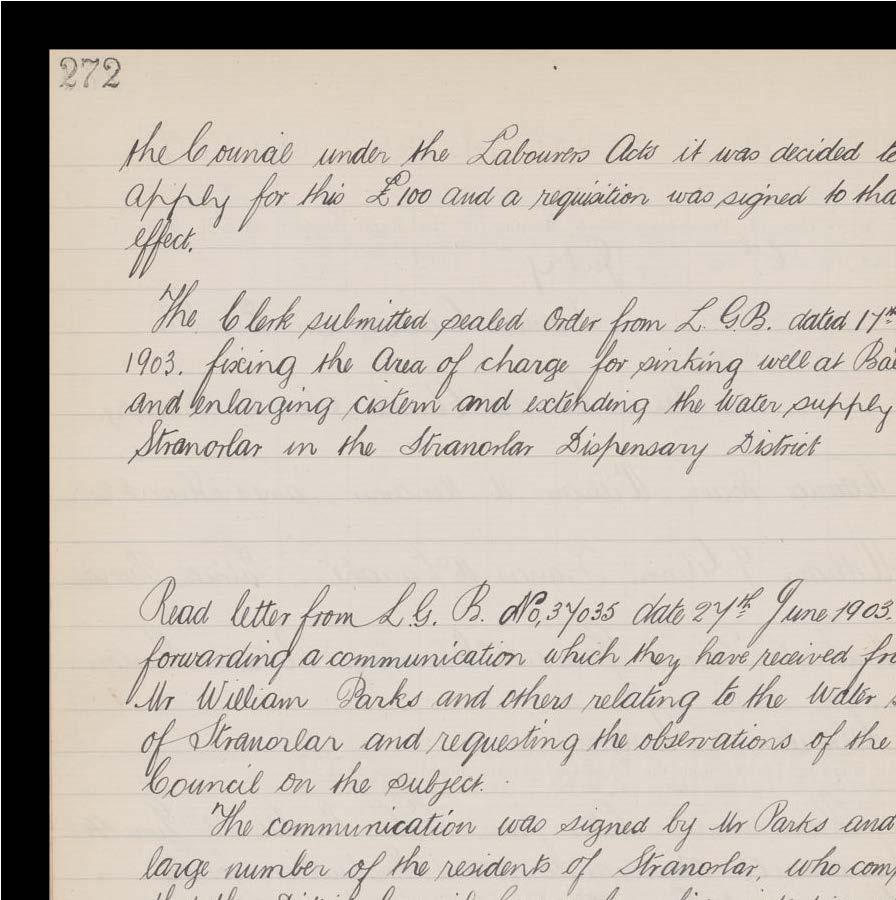 272
the Council under the Labourers Acts it was decided
apply for this £100 and a requisition was signed to
effect.
The Clerk submitted sealed Order from L. G.B. dated 17th
1903. fixing the Area of charge for sinking well at
and enlarging cistern and extending the Water supply
Stranorlar in the Stranorlar Dispensary District
Read letter from L.G. B. No, 37035 date 27th June 1903.
forwarding a communication which they have received
Mr William Parks and others relating to the Water
of Stranorlar and requesting the observations of the
Council on the subject.
The communication was signed by Mr Parks and
large number of the residents of Stranorlar, who